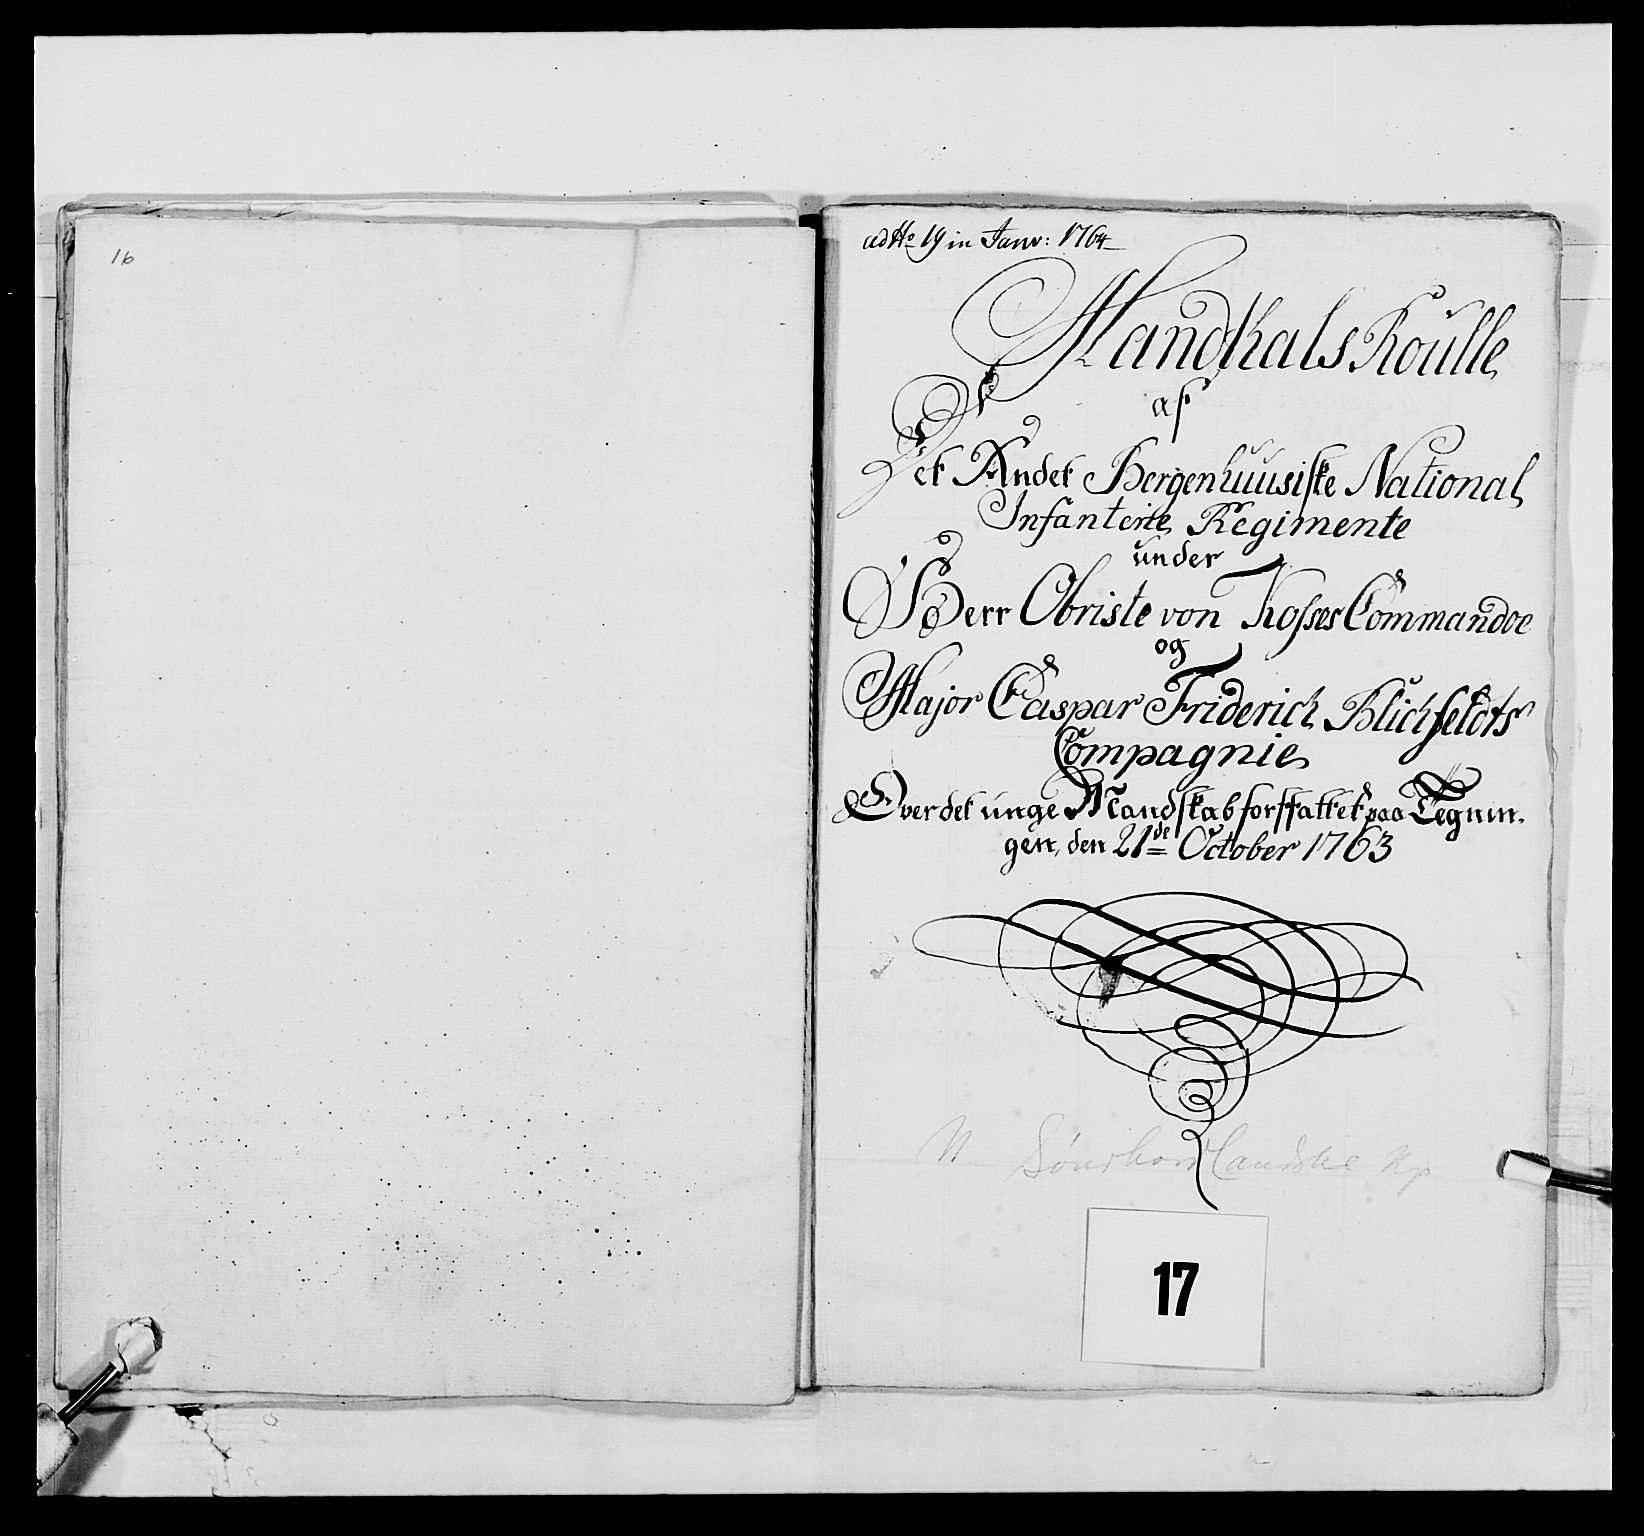 16
ad No 19 in Janv: 1764
Mandtals Roulle
af
Det Andet Bergenhuusiske National
Infanterie Regimente
under
Herr Obriste von Kosses Commandoe
og
Major Caspar Friderich Blichfeldts
Compagnie
Over det unge Mandskab forfattet paa Tegnin-
gen, den 21de October 1763
N Søndhordlandske Kp
17